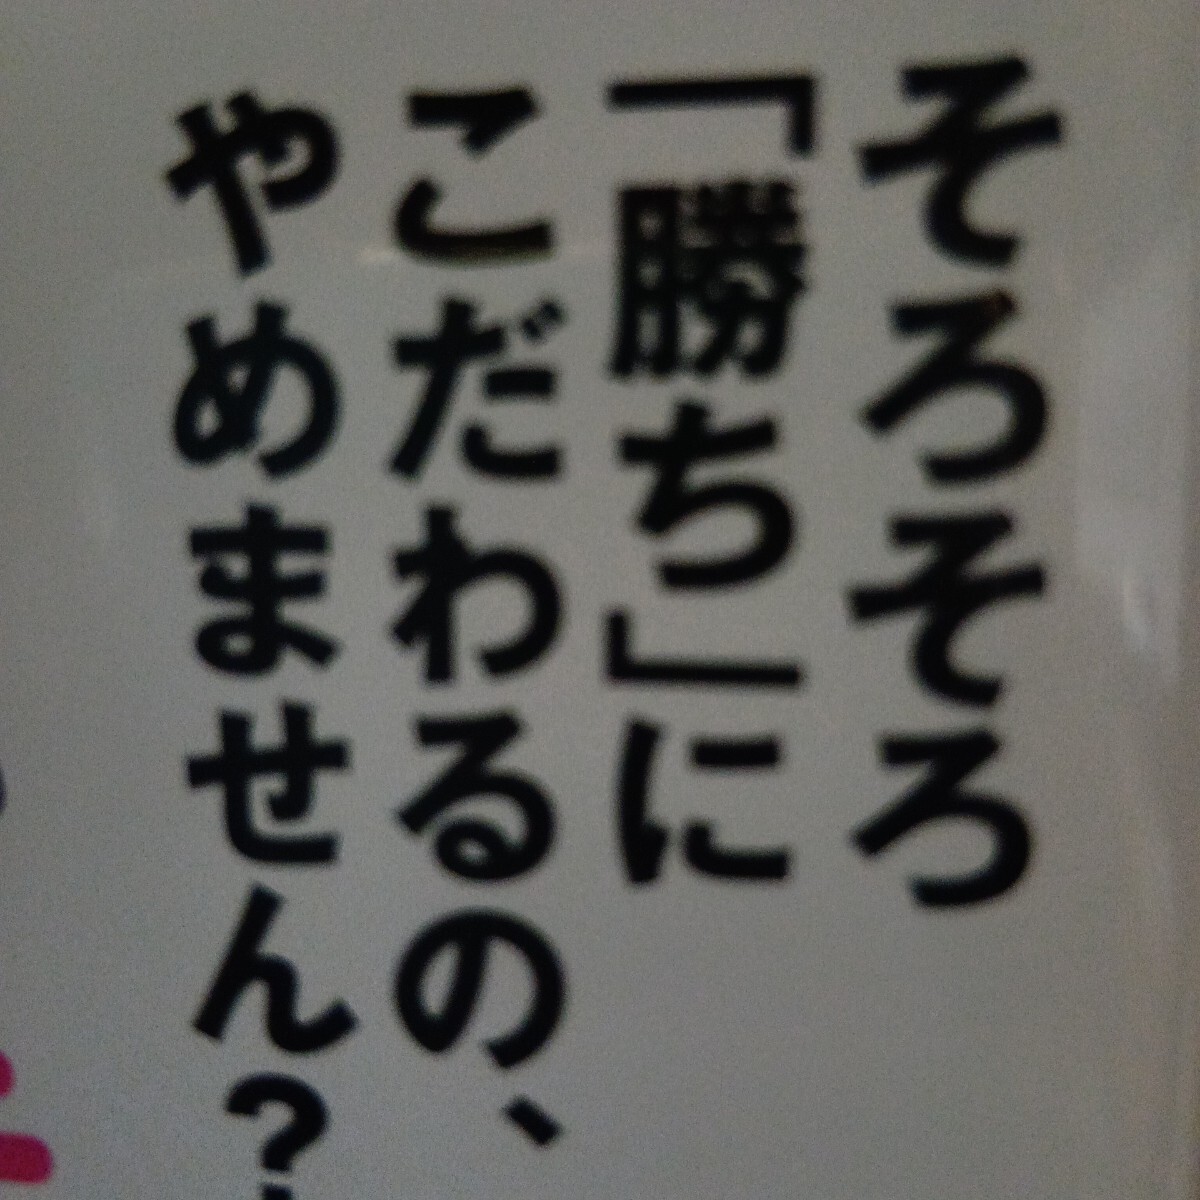 そろそろ
「勝ち」に
こだわるの、
やめません?